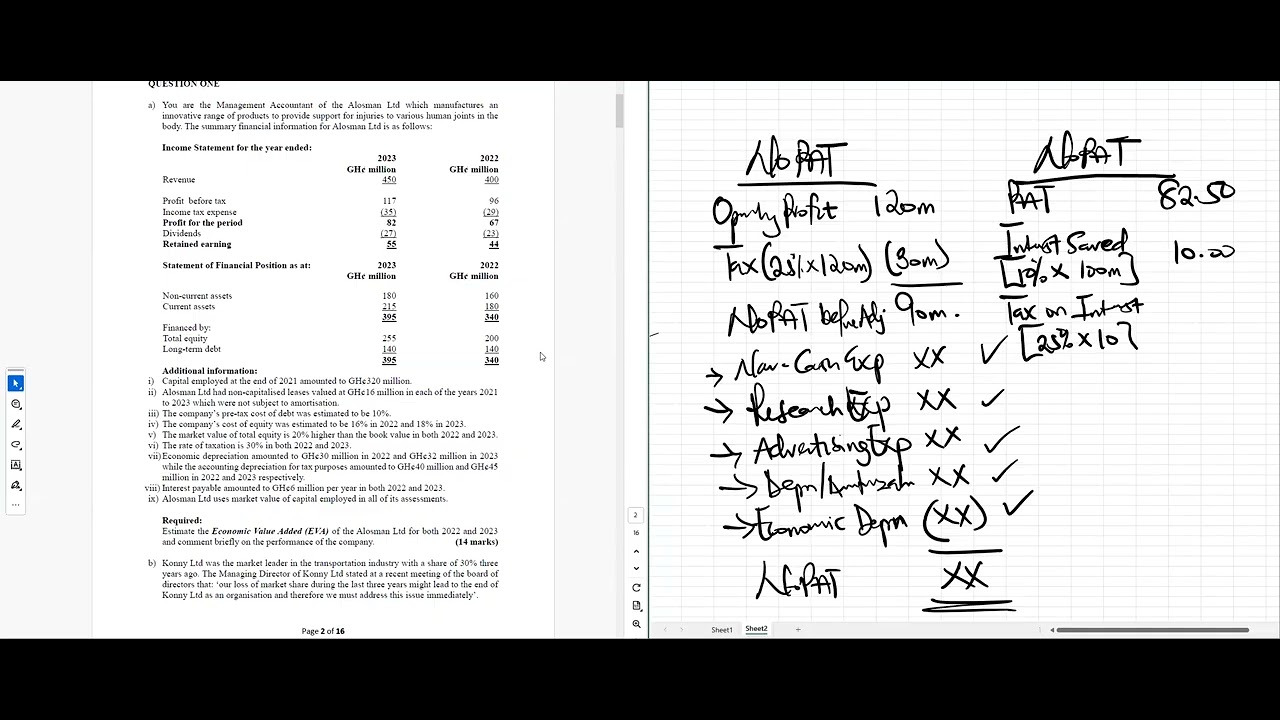 QUESTION ONE
a) You are the Management Accountant of the Alosman Ltd which manufactures an
innovative range of products to provide support for injuries to various human joints in the
body. The summary financial information for Alosman Ltd is as follows:
Income Statement for the year ended:
2023 2022
GH¢ million GH¢ million
Revenue 450 400
Profit before tax 117 96
Income tax expense (35) (29)
Profit for the period 82 67
Dividends (27) (23)
Retained earning 55 44
Statement of Financial Position as at: 2023 2022
GH¢ million GH¢ million
Non-current assets 180 160
Current assets 215 180
395 340
Financed by:
Total equity 255 200
Long-term debt 140 140
395 340
Additional information:
i) Capital employed at the end of 2021 amounted to GH¢320 million.
ii) Alosman Ltd had non-capitalised leases valued at GH¢16 million in each of the years 2021
to 2023 which were not subject to amortisation.
iii) The company's pre-tax cost of debt was estimated to be 10%.
iv) The company's cost of equity was estimated to be 16% in 2022 and 18% in 2023.
v) The market value of total equity is 20% higher than the book value in both 2022 and 2023.
vi) The rate of taxation is 30% in both 2022 and 2023.
vii) Economic depreciation amounted to GH¢30 million in 2022 and GH¢32 million in 2023
while the accounting depreciation for tax purposes amounted to GH¢40 million and GH¢45
million in 2022 and 2023 respectively.
viii) Interest payable amounted to GH¢6 million per year in both 2022 and 2023.
ix) Alosman Ltd uses market value of capital employed in all of its assessments.
Required:
Estimate the Economic Value Added (EVA) of the Alosman Ltd for both 2022 and 2023
and comment briefly on the performance of the company. (14 marks)
b) Konny Ltd was the market leader in the transportation industry with a share of 30% three
years ago. The Managing Director of Konny Ltd stated at a recent meeting of the board of
directors that: 'our loss of market share during the last three years might lead to the end of
Konny Ltd as an organisation and therefore we must address this issue immediately'.
Page 2 of 16
2
16
NOPAT
Profit 120m
Tax (25% x 120m) (30m)
NOPAT before Adj 90m.
→ Non-Cash Exp XX ✓
→ Research Exp XX ✓
→ Advertising Exp XX ✓
→ XX ✓
→ Economic Depn (XX) ✓
NOPAT XX
NOPAT
PAT 82.50
Interest Saved
[10% x 100m] 10.00
Tax on Interest
[25% x 10]
Sheet1 Sheet2 +